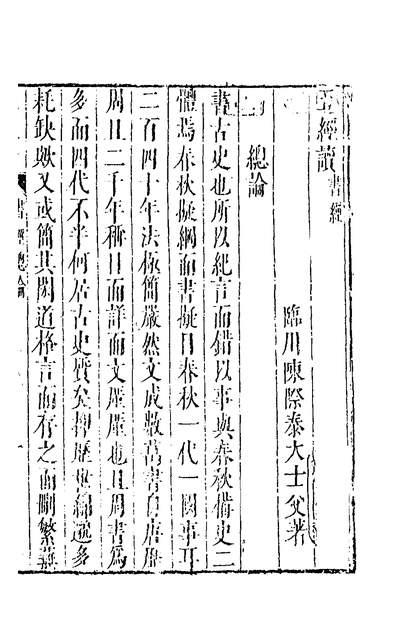 五經讀 書經
臨川陳際泰大士父著
總論
書古史也所以紀言而錯以事與春秋備史二
體焉春秋擬綱而書擬目春秋一代一國事耳
二百四十年法極簡嚴然文成數萬書自唐歷
周且二千年稱目而詳而文厪厪也且周書為
多而四代不半何居古史質矣抑歷世綿邈多
耗缺歟又或簡其閎道格言而存之而刪繁蕪